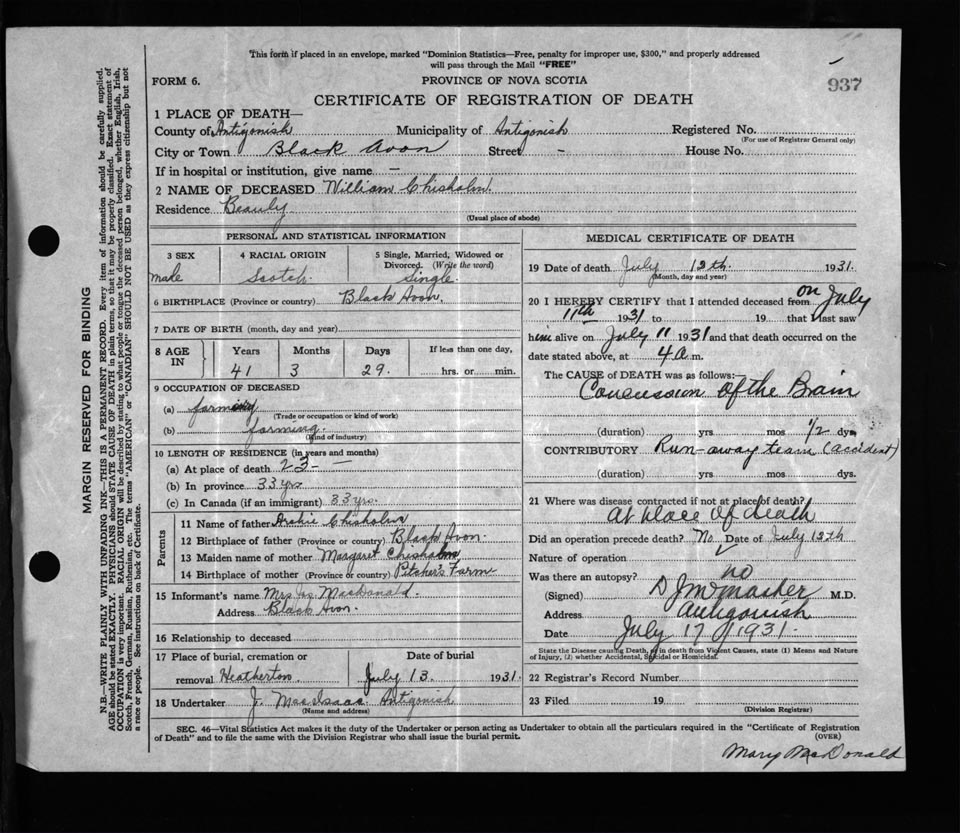 This form if placed in an envelope, marked "Dominion Statistics—Free, penalty for improper use, $300," and properly addressed
will pass through the Mail "FREE"
937
FORM 6.
PROVINCE OF NOVA SCOTIA
CERTIFICATE OF REGISTRATION OF DEATH
1 PLACE OF DEATH—
County of Antigonish Municipality of Antigonish Registered No.
(For use of Registrar General only)
City or Town Black Avon Street - House No.
If in hospital or institution, give name —
2 NAME OF DECEASED William Chisholm.
Residence Beauly
(Usual place of abode)
PERSONAL AND STATISTICAL INFORMATION
3 SEX 4 RACIAL ORIGIN 5 Single, Married, Widowed or
Divorced. (Write the word)
male Scotch. Single.
6 BIRTHPLACE (Province or country) Black Avon.
7 DATE OF BIRTH (month, day and year)
8 AGE IN Years Months Days If less than one day,
41 3 29. hrs. or min.
9 OCCUPATION OF DECEASED
(a) farming
(Trade or occupation or kind of work)
(b) farming.
(Kind of industry)
10 LENGTH OF RESIDENCE (in years and months)
(a) At place of death 23 —
(b) In province 33 yrs
(c) In Canada (if an immigrant) 33 yrs.
Parents
11 Name of father Archie Chisholm
12 Birthplace of father (Province or country) Black Avon.
13 Maiden name of mother Margaret Chisholm
14 Birthplace of mother (Province or country) Pitcher's Farm
15 Informant's name Mrs MacDonald.
Address Black Avon.
16 Relationship to deceased
17 Place of burial, cremation or Date of burial
removal Heatherton. July 13. 1931.
18 Undertaker J. MacIsaac Antigonish
(Name and address)
MEDICAL CERTIFICATE OF DEATH
19 Date of death July 12th. 1931.
(Month, day and year)
20 I HEREBY CERTIFY that I attended deceased from on July
11th 1931 to 19 that I last saw
him alive on July 11 1931 and that death occurred on the
date stated above, at 4 a.m.
The CAUSE of DEATH was as follows:—
Concussion of the Brain
(duration) yrs mos 1/2 dys.
CONTRIBUTORY Run-away team (accident)
(duration) yrs. mos. dys.
21 Where was disease contracted if not at place of death?
at place of death
Did an operation precede death? No Date of July 12th
Nature of operation
Was there an autopsy? no
(Signed) M.D.
Address Antigonish
Date July 17 1931.
State the Disease causing Death, or in death from Violent Causes, state (1) Means and Nature
of Injury, (2) whether Accidental, Suicidal or Homicidal.
22 Registrar's Record Number
23 Filed 19
(Division Registrar)
SEC. 46—Vital Statistics Act makes it the duty of the Undertaker or person acting as Undertaker to obtain all the particulars required in the "Certificate of Registration
of Death" and to file the same with the Division Registrar who shall issue the burial permit. (OVER)
Mary MacDonald
MARGIN RESERVED FOR BINDING
N.B.—WRITE PLAINLY WITH UNFADING INK—THIS IS A PERMANENT RECORD. Every item of information should be carefully supplied.
AGE should be stated EXACTLY. PHYSICIANS should STATE CAUSE OF DEATH in plain terms, so that it may be properly classified. Exact statement of
OCCUPATION is very important. RACIAL ORIGIN will be described by stating to what people or tongue the deceased person belonged, whether English, Irish,
Scotch, French, German, Russian, Ruthenian, etc. The terms "AMERICAN" or "CANADIAN" SHOULD NOT BE USED as they express citizenship but not
a race or people. See instructions on back of Certificate.